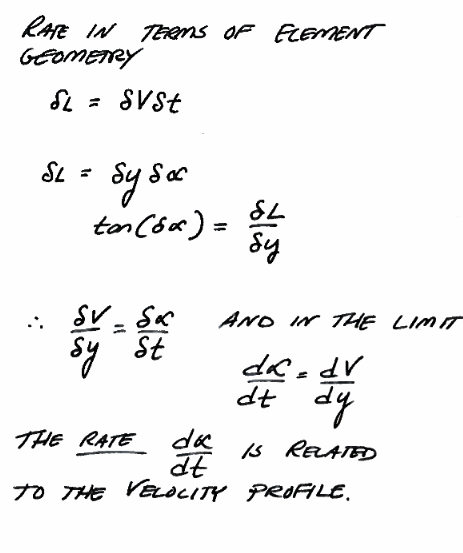 RATE IN TERMS OF ELEMENT
GEOMETRY
δL = δVδt
δL = δy δα
tan(δα) = δL/δy
∴ δV/δy = δα/δt AND IN THE LIMIT
dα/dt = dV/dy
THE RATE dα/dt IS RELATED
TO THE VELOCITY PROFILE.